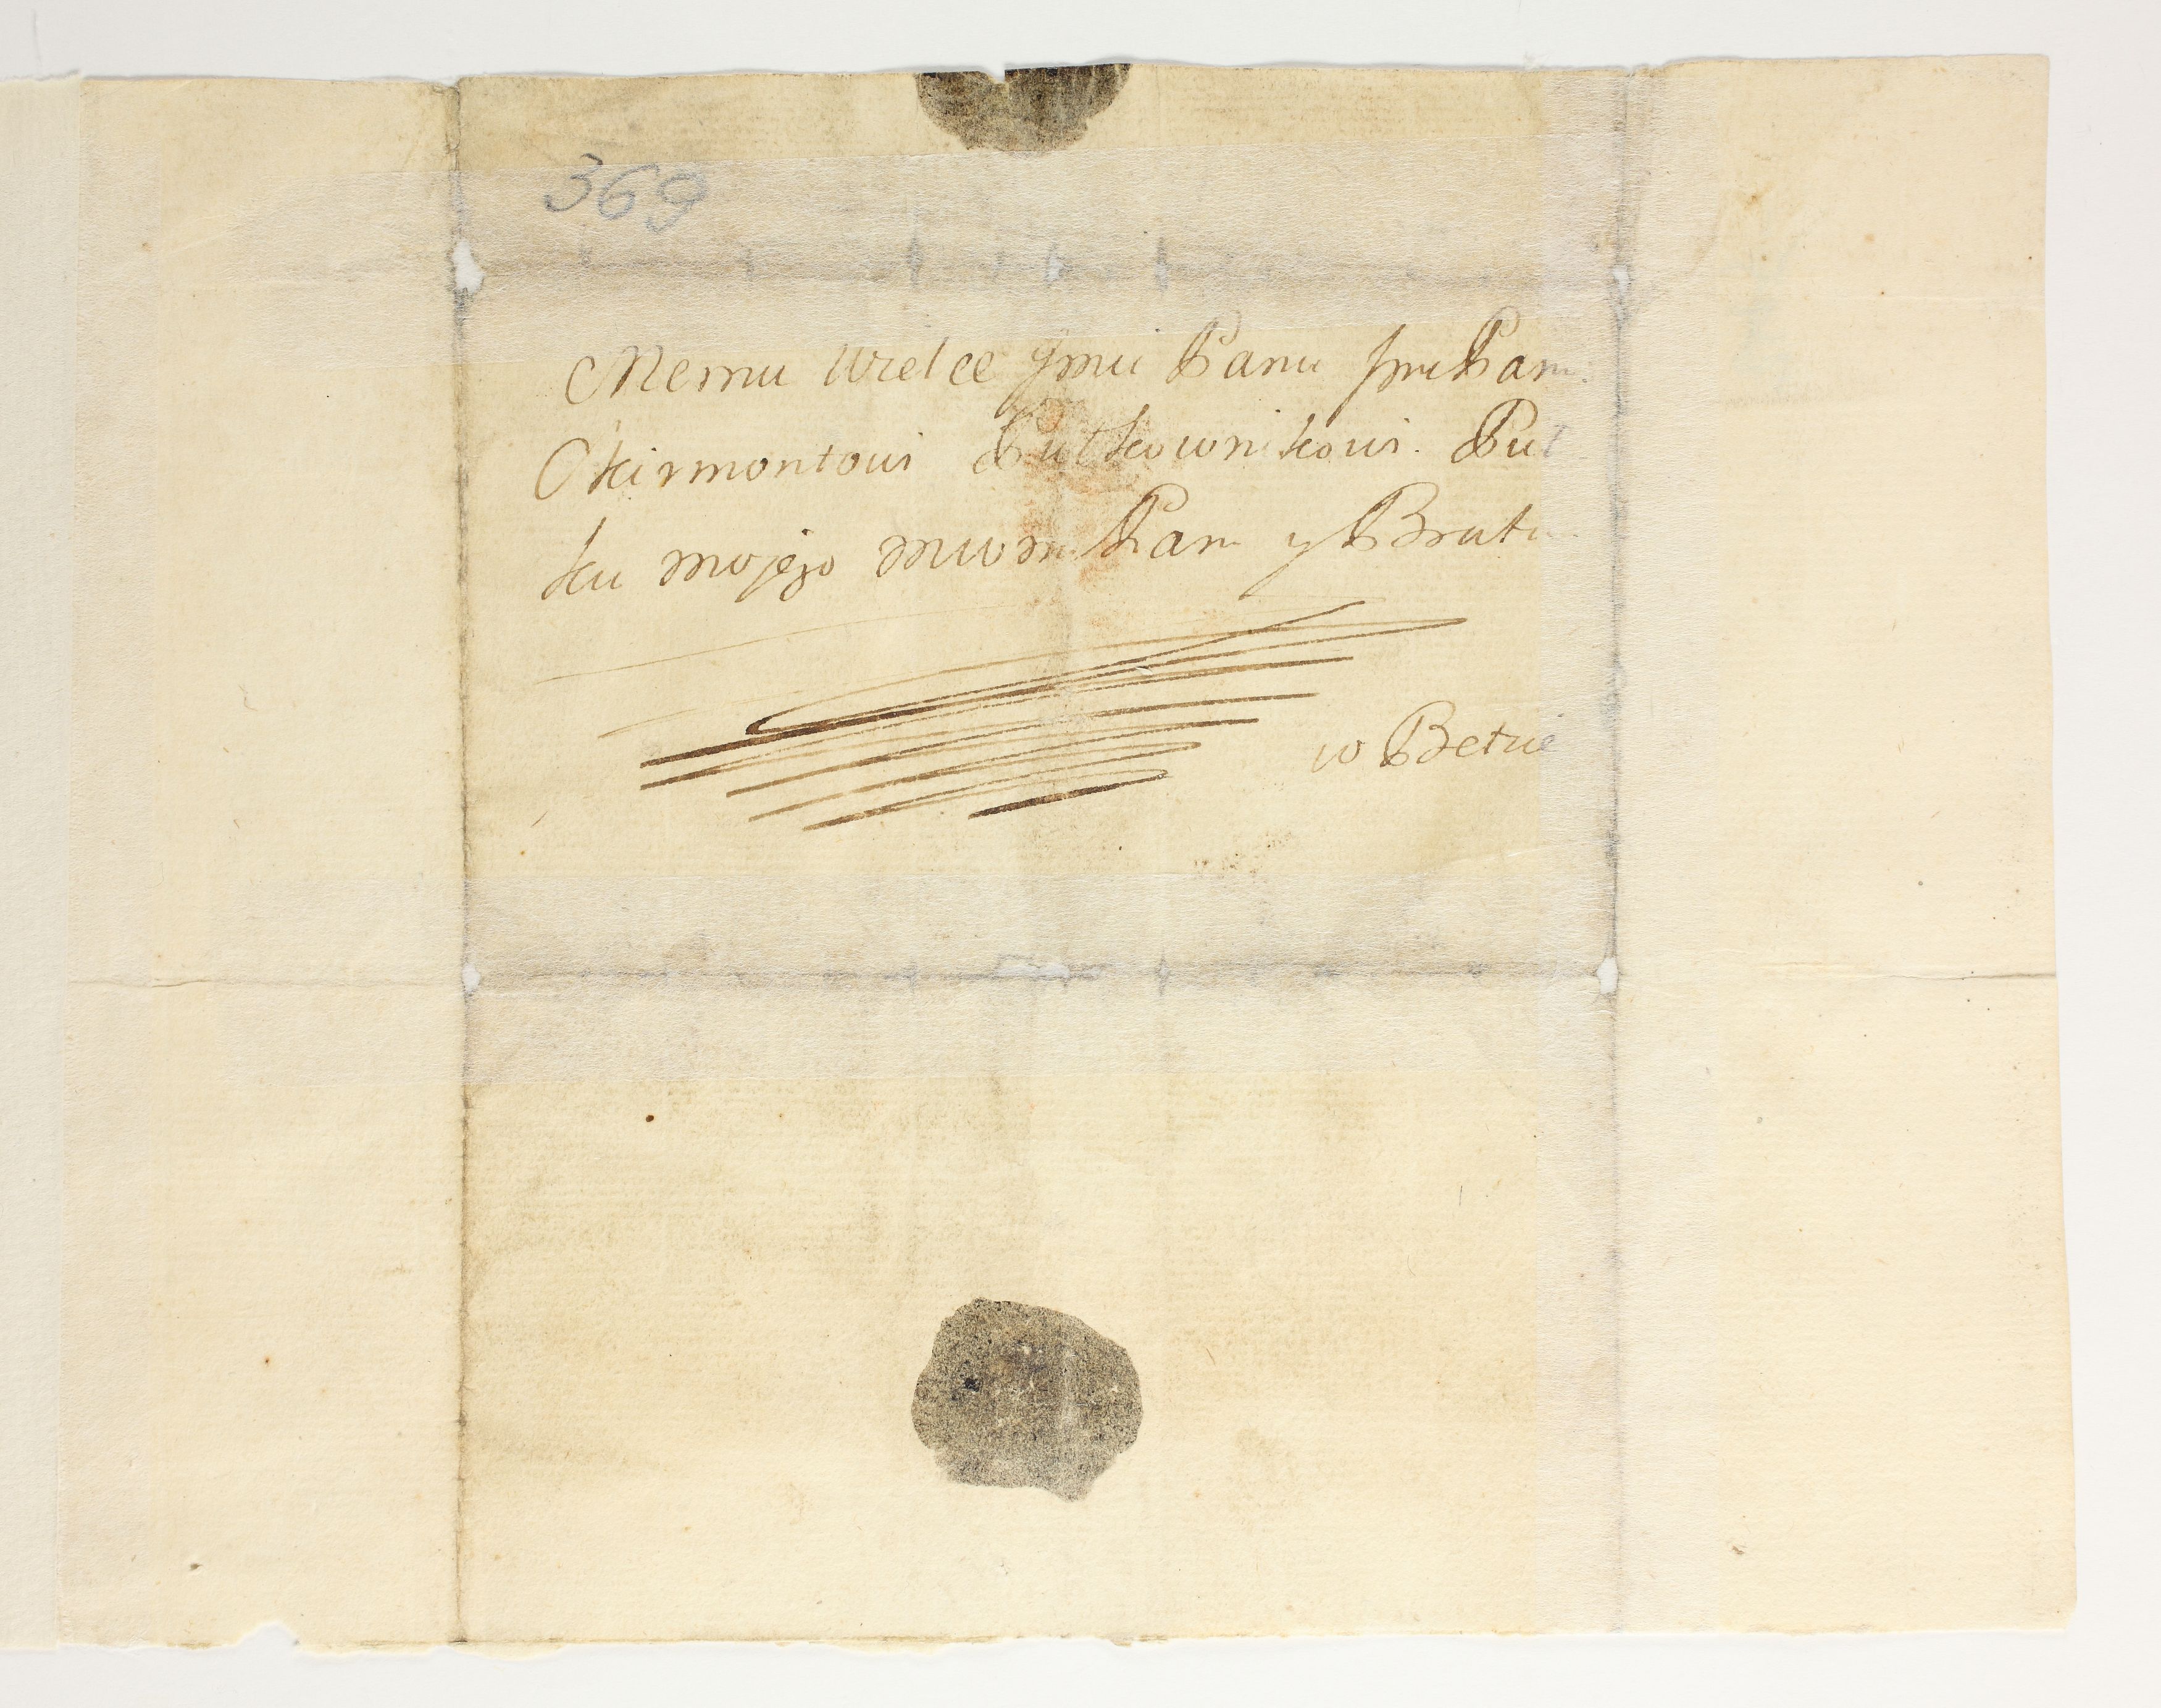 369
Memu Wielce Jmci Panu Jmc Panu
Skirmontowi Pułkownikowi Puł
ku mojego mwm Panu y Bratu
w Betcie